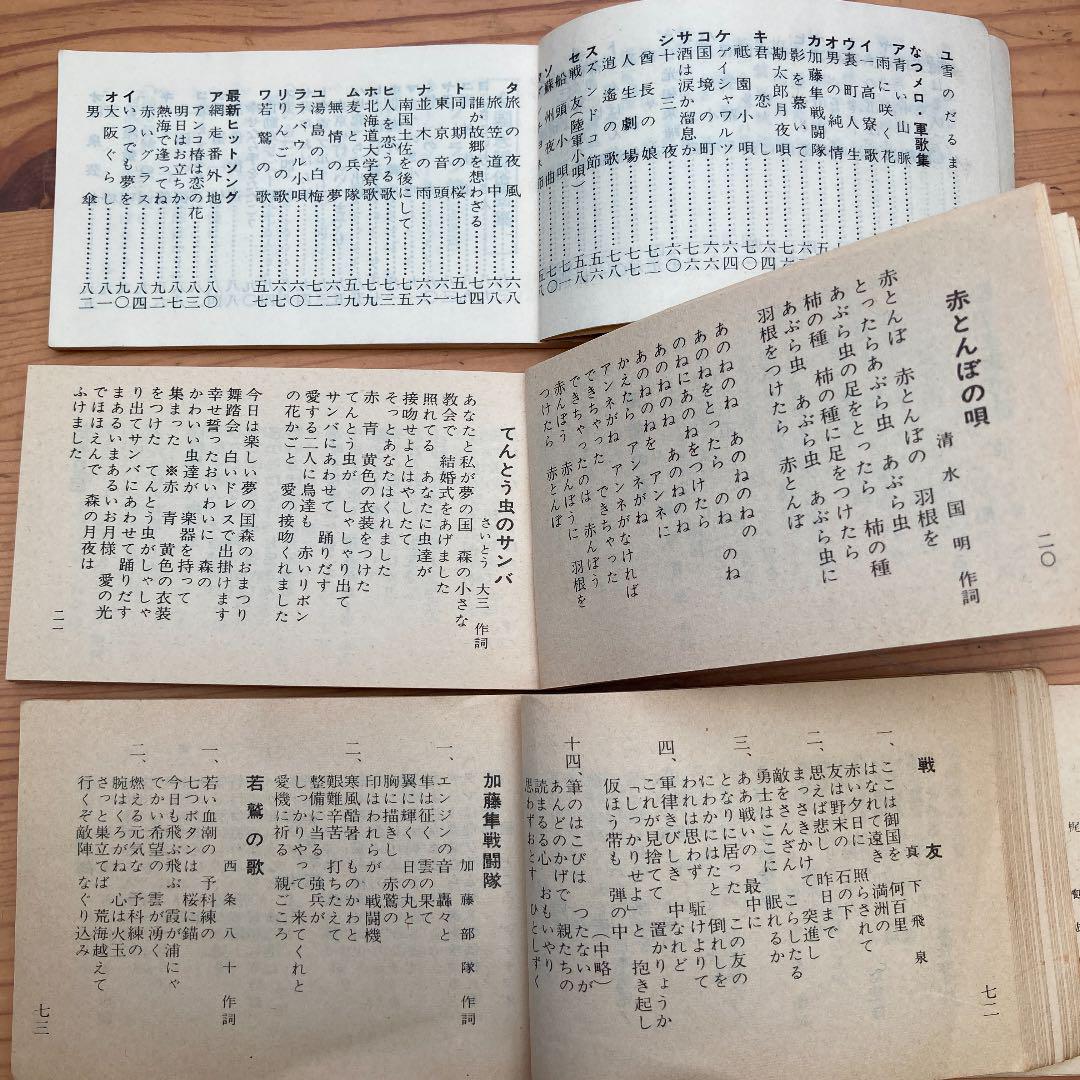 ユ雪のだるま
なつメロ・軍歌集
ア青い山脈
雨に咲く花
イ一高寮歌
ウ裏町人生
オ男の純情
カ加藤隼戦闘隊
影を慕いて
勘太郎月夜唄
キ君恋し
祗園小唄
ケゲイシャワルツ
コ国境の町
サ酒は涙か溜息か
シ十三夜……六〇
酋長の娘……七二
人生劇場
逍遙の歌
スズンドコ節
セ戦友(陸軍小唄)
船頭小唄
ソ蘇州夜曲
タ旅の夜風……六八
旅笠道中……六八
誰か故郷を想わざる……七四
ト同期の桜……五七
東京音頭……六一
ナ並木の雨……六六
南国土佐を後にして……七五
ヒ人を恋うる歌
ホ北海道大学寮歌……七九
ム麦と兵隊……五九
無情の夢
ユ湯島の白梅……七二
ララバウル小唄……六〇
リりんごの歌
ワ若鷲の歌……五七
最新ヒットソング
ア網走番外地……八〇
アンコ椿は恋の花……八三
明日はお立ちか……八七
熱海で逢ってね……八八
赤いグラス……八四
イいつでも夢を……九〇
オ大阪ぐらし
男傘……八二
赤とんぼの唄
清水国明 作詞
赤とんぼ 赤とんぼの 羽根を
とったらあぶら虫 あぶら虫
あぶら虫の足をとったら 柿の種
柿の種 柿の種に足をつけたら
あぶら虫 あぶら虫 あぶら虫に
羽根をつけたら 赤とんぼ
あのねのね あのねのねの
あのねをとったら のねのね
のねにあのねをつけたら
あのねのね あのねのね
あのねのねを アンネに
かえたら アンネがね
アンネがね アンネがなければ
できちゃった できちゃった
できちゃったのは 赤んぼう
赤んぼう 赤んぼうに 羽根を
つけたら 赤とんぼ
二〇
てんとう虫のサンバ
さいとう 大三 作詞
あなたと私が夢の国 森の小さな
教会で 結婚式をあげました
照れてる あなたに虫達が
接吻せよとはやしたて
そっとあなたはくれました
赤 青 黄色の衣装をつけた
てんとう虫が しゃしゃり出て
サンバにあわせて 踊りだす
愛する二人に鳥達も 赤いリボン
の花かごと 愛の接吻くれました
今日は楽しい夢の国森のおまつり
舞踏会 白いドレスで出掛けます
幸せ誓ったおいわいに 森の
かわいい虫達が 楽器を持って
集まった ※赤 青 黄色の衣装
をつけた てんとう虫がしゃしゃ
り出てサンバにあわせて踊りだす
まあるいまあるいお月様 愛の光
でほほえんで 森の月夜は
ふけました
二一
戦友
真下飛泉
一、ここは御国を 何百里
はなれて遠き 満洲の
赤い夕日に 照らされて
友は野末の 石の下
二、思えば悲し 昨日まで
まっさきかけて 突進し
敵をさんざん こらしたる
勇士はここに 眠れるか
三、ああ戦いの 最中に
となりに居った この友の
にわかにはたと 倒れしを
われは思わず 駈けよりて
四、軍律きびしき 中なれど
これが見捨てて 置かりょうか
「しっかりせよ」と 抱き起し
仮ほう帯も 弾の中
(中略)
十四、筆のはこびは つたないが
あんどのかげで 親たちの
読まるる心 おもいやり
思わずおとす ひとしずく
七二
加藤隼戦闘隊
加藤部隊 作詞
一、エンジンの音 轟々と
隼は征く 雲の果て
翼に輝く 日の丸と
胸に描きし 赤鷲の
印はわれらが 戦闘機
二、寒風酷暑 ものかわと
艱難辛苦 打ちたえて
整備に当る 強兵が
しっかりやって 来てくれと
愛機に祈る 親ごころ
若鷲の歌
西条八十 作詞
一、若い血潮の 予科練の
七つボタンは 桜に錨
今日も飛ぶ飛ぶ 霞が浦にゃ
でかい希望の 雲が湧く
二、燃える元気な 予科練の
腕はくろがね 心は火玉
さっと巣立てば 荒海越えて
行くぞ敵陣 なぐり込み
七三